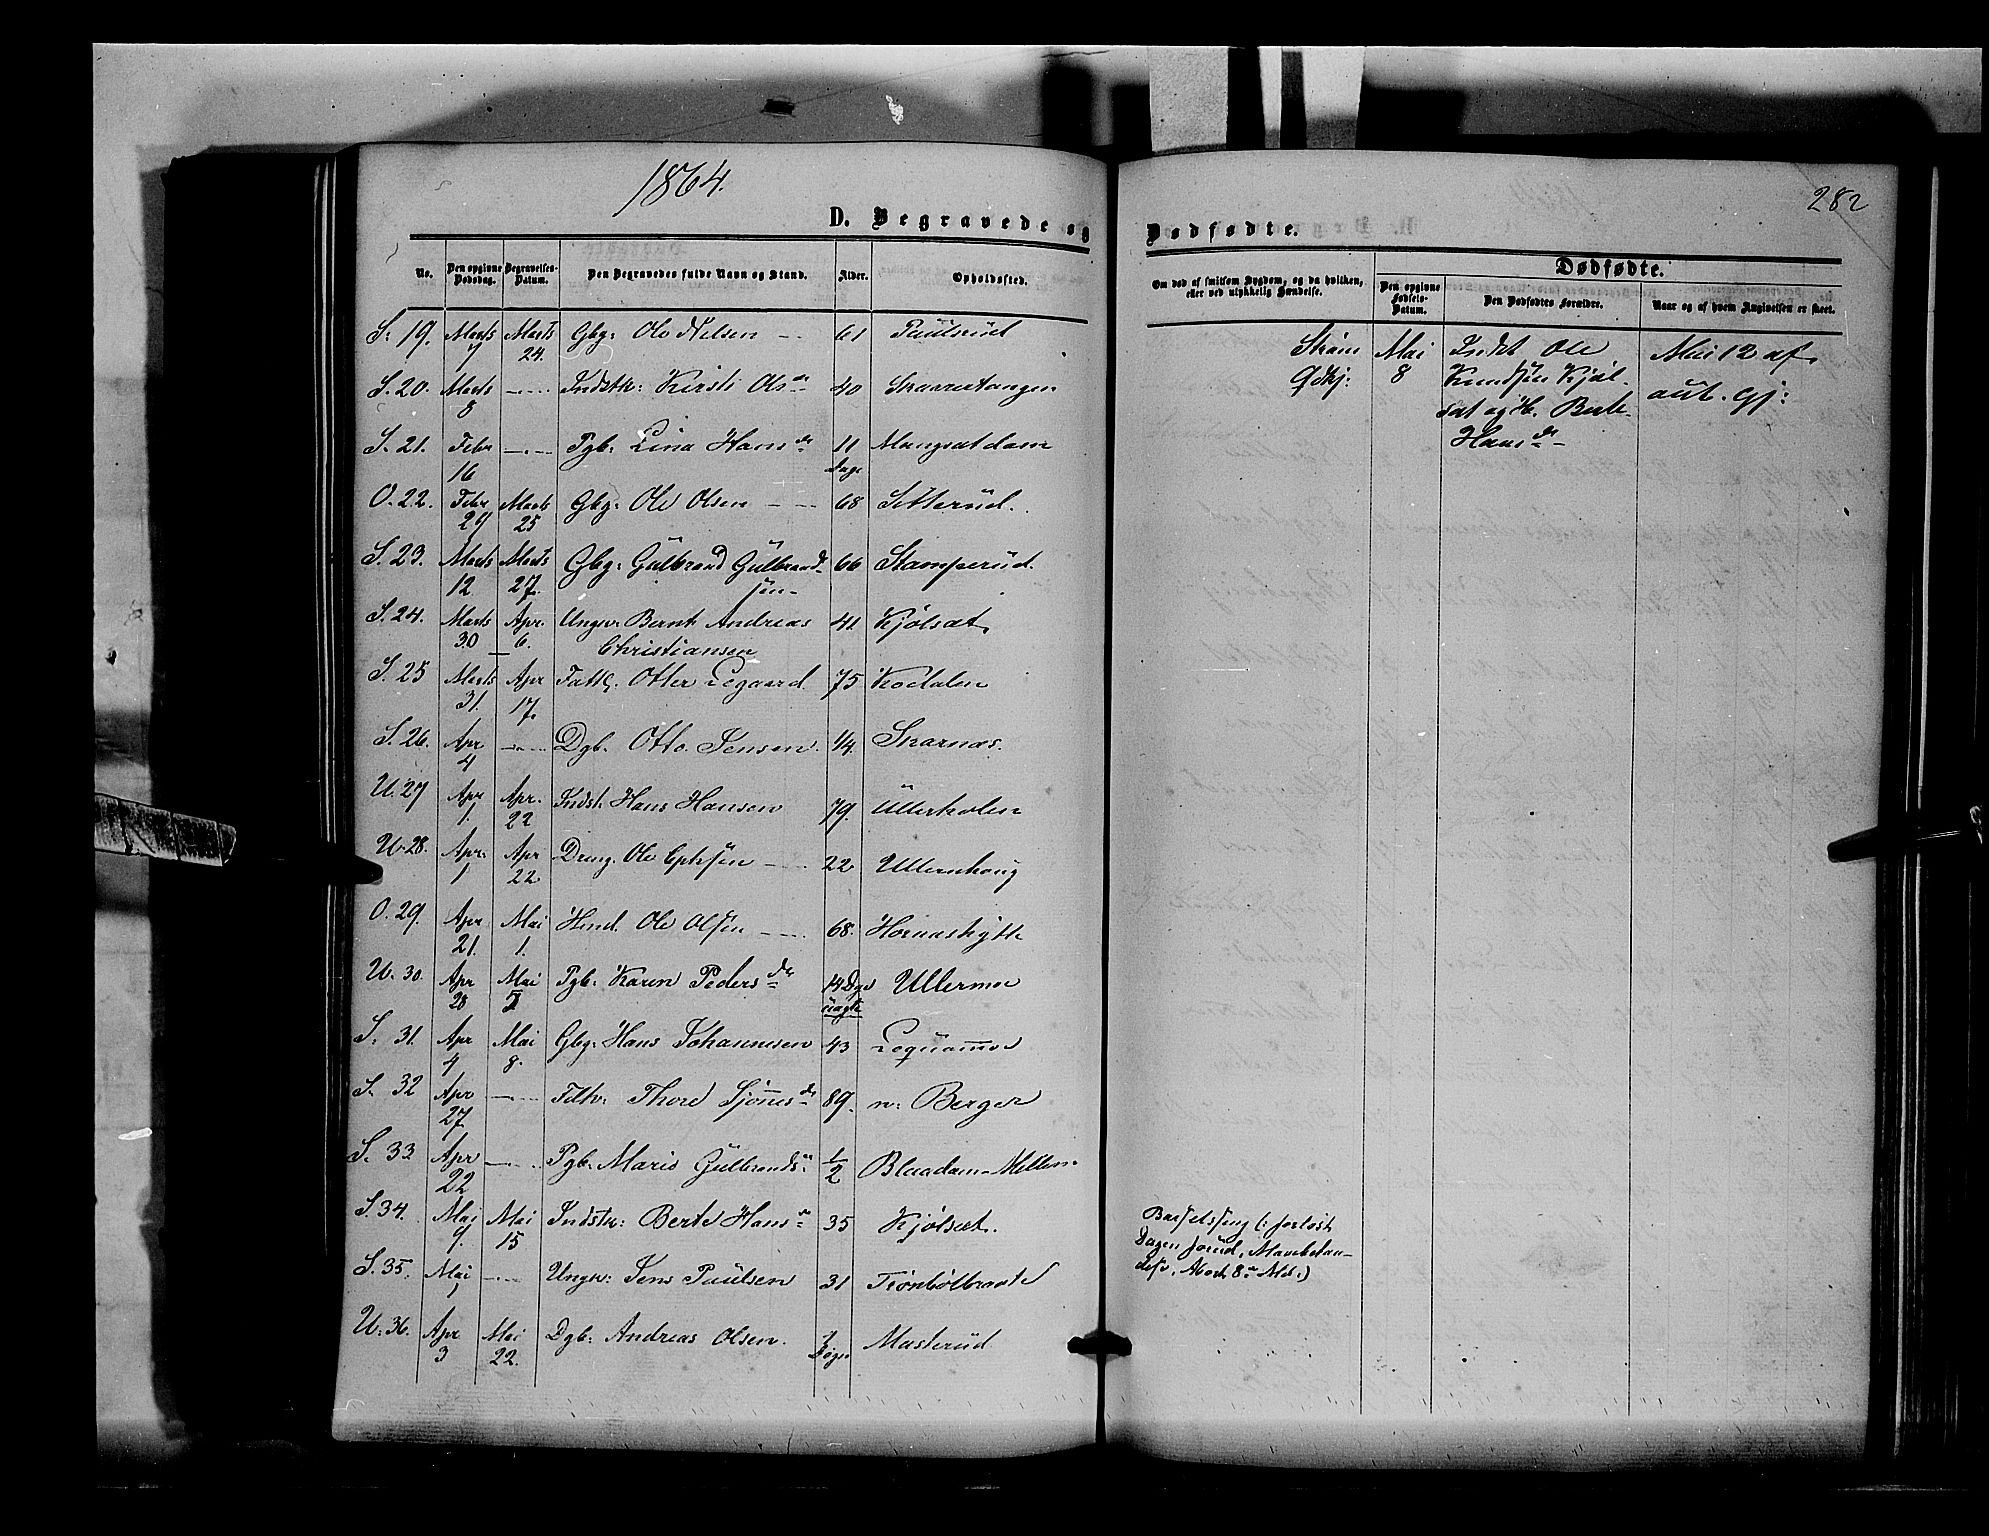 1864.
282
D. Begravede og
Dødfødte.
No. Den opgivne Dødsdag. Begravelses-Datum. Den Begravedes fulde Navn og Stand. Alder. Opholdssted.
Om død af smitsom Sygdom, og da hvilken, eller ved ulykkelig Hændelse.
Dødfødte.
Den opgivne Fødsels-Datum. Den Dødfødtes Forældre. Naar og af hvem Angivelsen er skeet.
S. 19. Marts 7 Marts 24. Gbg: Ole Nilsen 61 Paulsrud
S. 20. Marts 8 — Indstk: Kirsti Olsdr 40 Skarrestangen
S. 21. Febr 16 — Pgb. Lina Hansdr 11 Dage Mangsætdam
O. 22. Febr 29 Marts 25 Gbg: Ole Olsen 68 Setterud.
S. 23. Marts 12 Marts 27. Gbg: Gulbrand Gulbrand-
sen
66 Stamperud.
S. 24. Marts 30 Apr. 6. Ungk: Bernt Andreas
Christiansen
41 Kjølsæt.
S. 25 Marts 31. Apr 17. Fattl. Otter Legaard 75 Kodalen
S. 26. Apr 4 — Dgb. Otto Jensen. 1/4. Skarnæs.
U. 27 Apr 1 Apr. 22 Indst: Hans Hansen 79. Ullerholen
U. 28. Apr. 1 Apr 22 Dreng. Ole 22 Ullernhaug
O. 29. Apr 21. Mai 1. Ole Olsen 68.
U. 30. Apr 28 Mai 5 Pgb: Karen Pedersdr 14 Dge Ullermoe
S. 31. Apr 4 Mai 8. Gbg: Hans Johannesen 43
S. 32 Apr 27 — Thore 89. n: Berger
S. 33 Apr 22 — Pgb. Marie Gulbrands: 1/2 Blaadam-Mellem
S. 34. Mai 9. Mai 15 Indstk: Berte Hansdr 35 Kjølsæt.
S. 35. Mai 1 — Ungk: Jens Paulsen 31 Trønbølbraate
U. 36. Apr 3 Mai 22. Dgb: Andreas Olsen. Døgn Masterud
Strøm
Gdkj:
Mai
8
Indst Ole
Knudsen Kjøl-
sæt og H. Berte
Hansdr
Mai 12 af
aut. Gj:
Barselseng (: forløst
Dagen forud,
:)